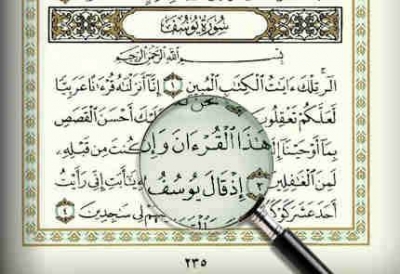 سُورَةُ يُوسُفَ
بِسْمِ اللَّهِ الرَّحْمَٰنِ الرَّحِيمِ
الٓر تِلْكَ ءَايَٰتُ ٱلْكِتَٰبِ ٱلْمُبِينِ ١ إِنَّآ أَنزَلْنَٰهُ قُرْءَٰنًا عَرَبِيًّا
لَّعَلَّكُمْ تَعْقِلُونَ نَحْنُ عَلَيْكَ أَحْسَنَ ٱلْقَصَصِ
بِمَآ أَوْحَيْنَآ هَٰذَا ٱلْقُرْءَانَ وَإِن كُنتَ مِن قَبْلِهِۦ
لَمِنَ ٱلْغَٰفِلِينَ ٣ إِذْ قَالَ يُوسُفُ يَٰٓأَبَتِ إِنِّى رَأَيْتُ
أَحَدَ عَشَرَ كَوْكَبًا لِى سَٰجِدِينَ ٤
٢٣٥